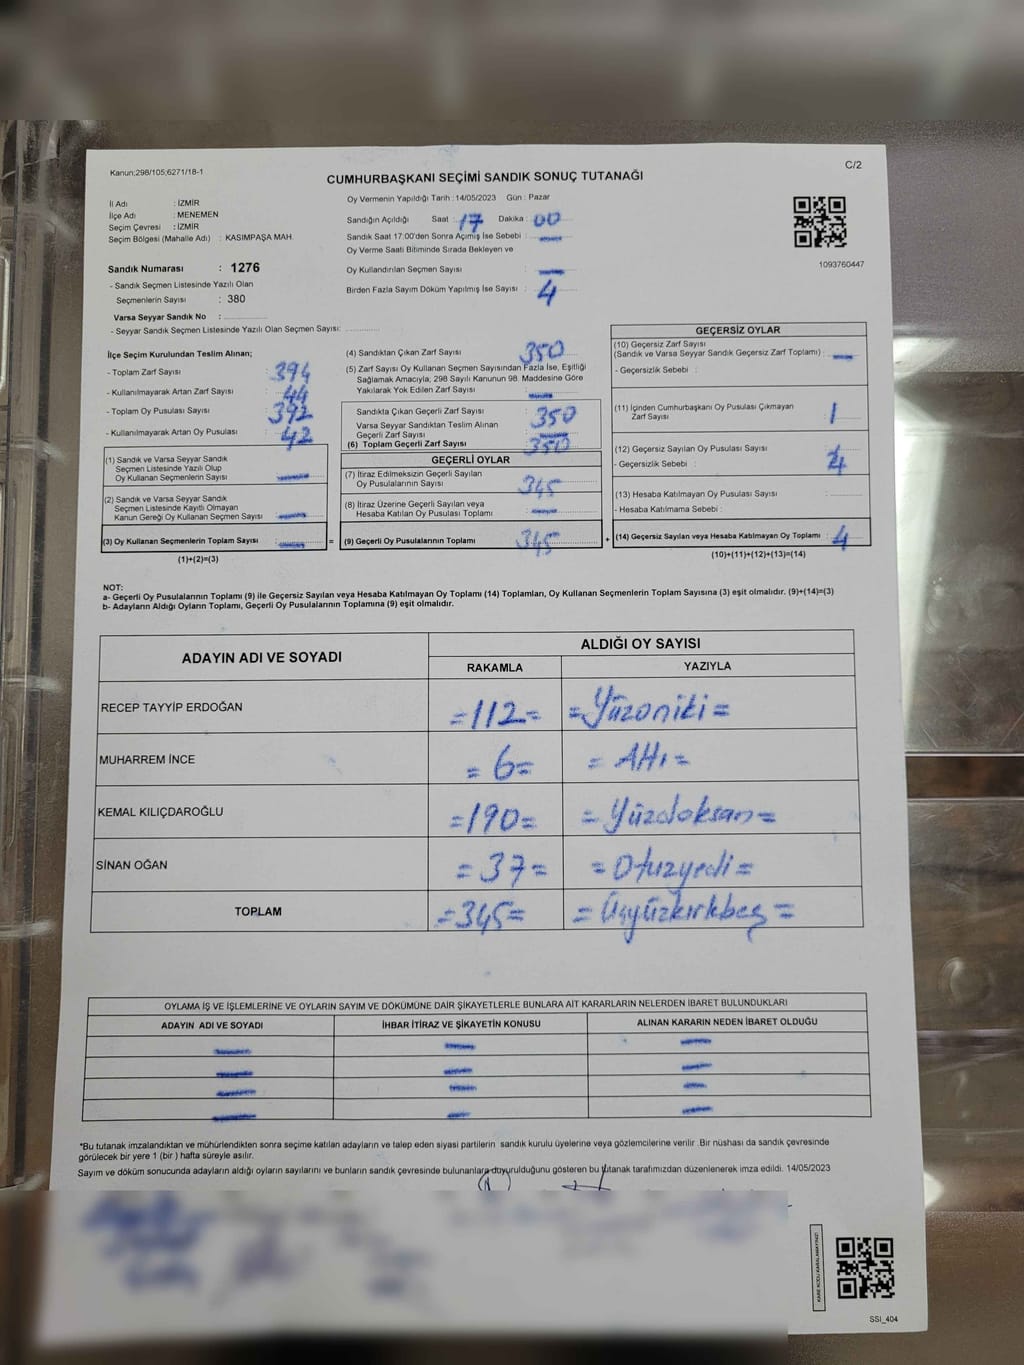 Kanun;298/105;6271/18-1
C/2
CUMHURBAŞKANI SEÇİMİ SANDIK SONUÇ TUTANAĞI
İl Adı : İZMİR
İlçe Adı : MENEMEN
Seçim Çevresi : İZMİR
Seçim Bölgesi (Mahalle Adı) : KASIMPAŞA MAH.
Sandık Numarası : 1276
- Sandık Seçmen Listesinde Yazılı Olan
Seçmenlerin Sayısı : 380
Varsa Seyyar Sandık No :
- Seyyar Sandık Seçmen Listesinde Yazılı Olan Seçmen Sayısı:
Oy Vermenin Yapıldığı Tarih : 14/05/2023 Gün : Pazar
Sandığın Açıldığı Saat : 17 Dakika : 00
Sandık Saat 17:00'den Sonra Açımış İse Sebebi :
Oy Verme Saati Bitiminde Sırada Bekleyen ve
Oy Kullandırılan Seçmen Sayısı :
Birden Fazla Sayım Döküm Yapılmış İse Sayısı : 4
1093760447
İlçe Seçim Kurulundan Teslim Alınan;
- Toplam Zarf Sayısı : 394
- Kullanılmayarak Artan Zarf Sayısı : 44
- Toplam Oy Pusulası Sayısı : 392
- Kullanılmayarak Artan Oy Pusulası : 42
(1) Sandık ve Varsa Seyyar Sandık
Seçmen Listesinde Yazılı Olup
Oy Kullanan Seçmenlerin Sayısı :
(2) Sandık ve Varsa Seyyar Sandık
Seçmen Listesinde Kayıtlı Olmayan
Kanun Gereği Oy Kullanan Seçmen Sayısı :
(3) Oy Kullanan Seçmenlerin Toplam Sayısı :
(1)+(2)=(3)
(4) Sandıktan Çıkan Zarf Sayısı : 350
(5) Zarf Sayısı Oy Kullanan Seçmen Sayısından Fazla İse, Eşitliği
Sağlamak Amacıyla; 298 Sayılı Kanunun 98. Maddesine Göre
Yakılarak Yok Edilen Zarf Sayısı :
Sandıkta Çıkan Geçerli Zarf Sayısı : 350
Varsa Seyyar Sandıktan Teslim Alınan
Geçerli Zarf Sayısı :
(6) Toplam Geçerli Zarf Sayısı : 350
GEÇERLİ OYLAR
(7) İtiraz Edilmeksizin Geçerli Sayılan
Oy Pusulalarının Sayısı : 345
(8) İtiraz Üzerine Geçerli Sayılan veya
Hesaba Katılan Oy Pusulası Toplamı :
= (9) Geçerli Oy Pusulalarının Toplamı : 345
GEÇERSİZ OYLAR
(10) Geçersiz Zarf Sayısı
(Sandık ve Varsa Seyyar Sandık Geçersiz Zarf Toplamı) :
- Geçersizlik Sebebi :
(11) İçinden Cumhurbaşkanı Oy Pusulası Çıkmayan
Zarf Sayısı : 1
(12) Geçersiz Sayılan Oy Pusulası Sayısı : 4
- Geçersizlik Sebebi :
(13) Hesaba Katılmayan Oy Pusulası Sayısı :
- Hesaba Katılmama Sebebi :
+ (14) Geçersiz Sayılan veya Hesaba Katılmayan Oy Toplamı : 4
(10)+(11)+(12)+(13)=(14)
NOT:
a- Geçerli Oy Pusulalarının Toplamı (9) ile Geçersiz Sayılan veya Hesaba Katılmayan Oy Toplamı (14) Toplamları, Oy Kullanan Seçmenlerin Toplam Sayısına (3) eşit olmalıdır. (9)+(14)=(3)
b- Adayların Aldığı Oyların Toplamı, Geçerli Oy Pusulalarının Toplamına (9) eşit olmalıdır.
ADAYIN ADI VE SOYADI
ALDIĞI OY SAYISI
RAKAMLA YAZIYLA
RECEP TAYYİP ERDOĞAN =112= =Yüzoniki=
MUHARREM İNCE = 6= = Altı =
KEMAL KILIÇDAROĞLU =190= = Yüzdoksan=
SİNAN OĞAN = 37 = = Otuzyedi =
TOPLAM =345= = Üçyüzkırkbeş =
OYLAMA İŞ VE İŞLEMLERİNE VE OYLARIN SAYIM VE DÖKÜMÜNE DAİR ŞİKAYETLERLE BUNLARA AİT KARARLARIN NELERDEN İBARET BULUNDUKLARI
ADAYIN ADI VE SOYADI İHBAR İTİRAZ VE ŞİKAYETİN KONUSU ALINAN KARARIN NEDEN İBARET OLDUĞU
*Bu tutanak imzalandıktan ve mühürlendikten sonra seçime katılan adayların ve talep eden siyasi partilerin sandık kurulu üyelerine veya gözlemcilerine verilir .Bir nüshası da sandık çevresinde
görülecek bir yere 1 (bir ) hafta süreyle asılır.
Sayım ve döküm sonucunda adayların aldığı oyların sayılarını ve bunların sandık çevresinde bulunanlara duyurulduğunu gösteren bu tutanak tarafımızdan düzenlenerek imza edildi. 14/05/2023
KARE KODU KARALAMAYINIZ!
SSI_404